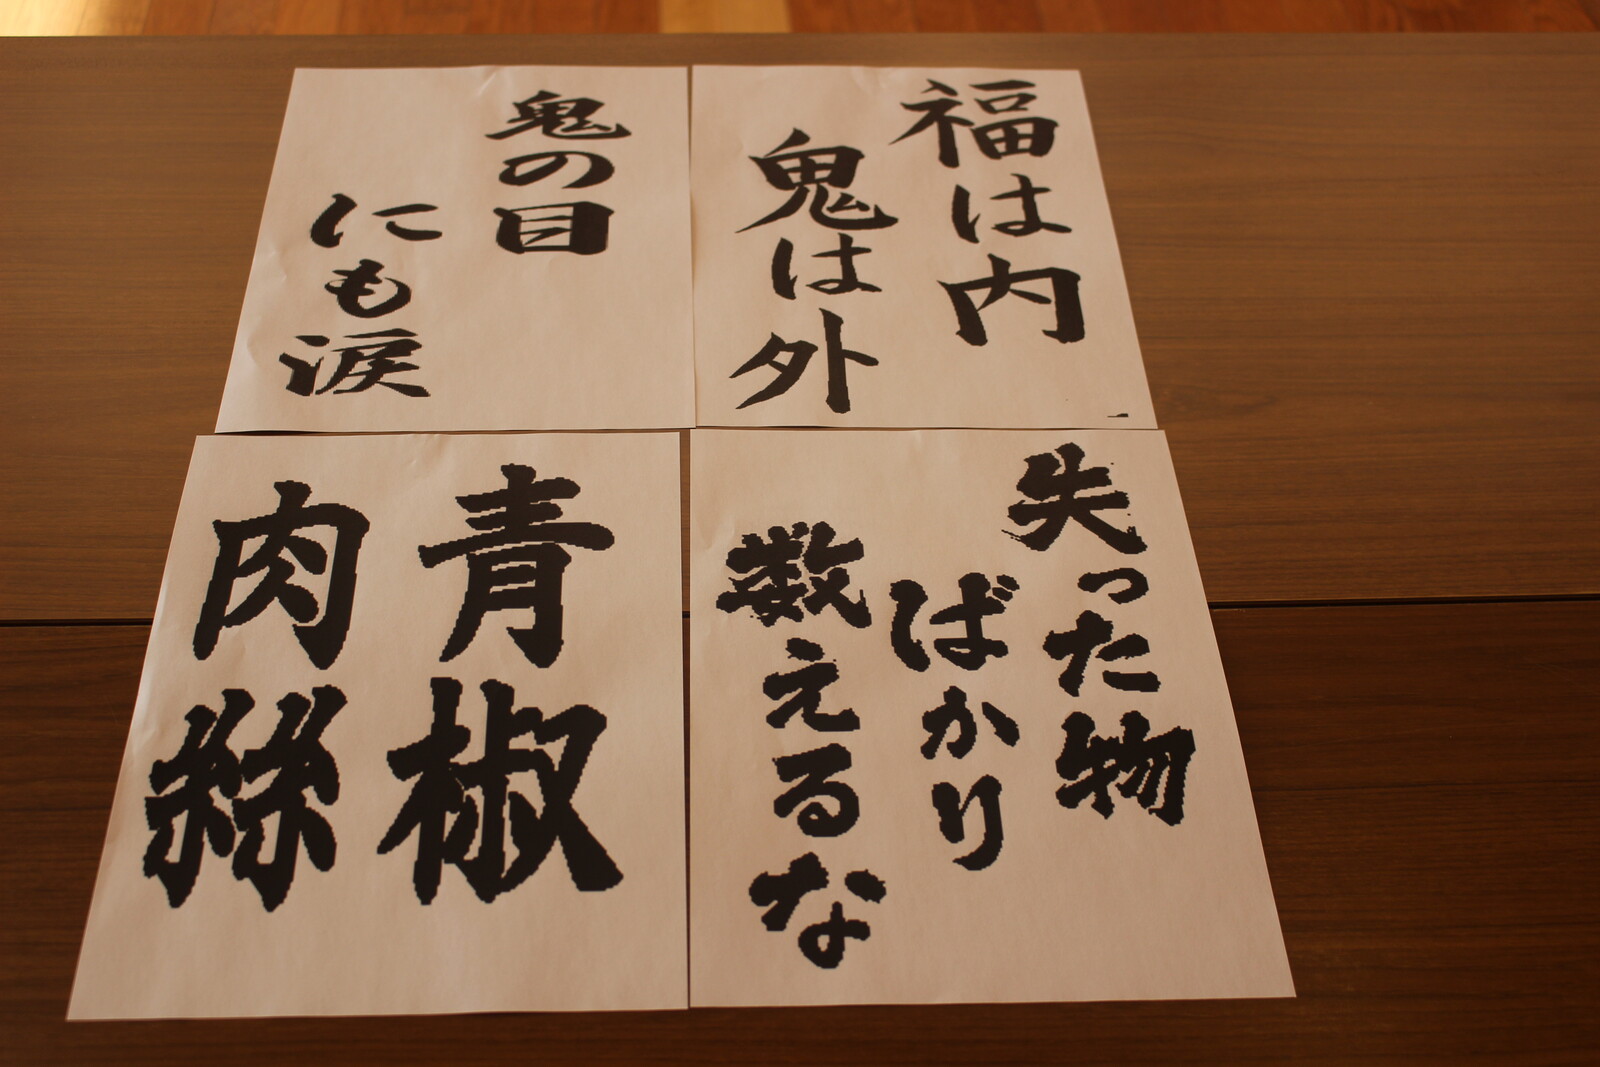 福は内
鬼は外
鬼の目
にも涙
失った物
ばかり
数えるな
青椒
肉絲